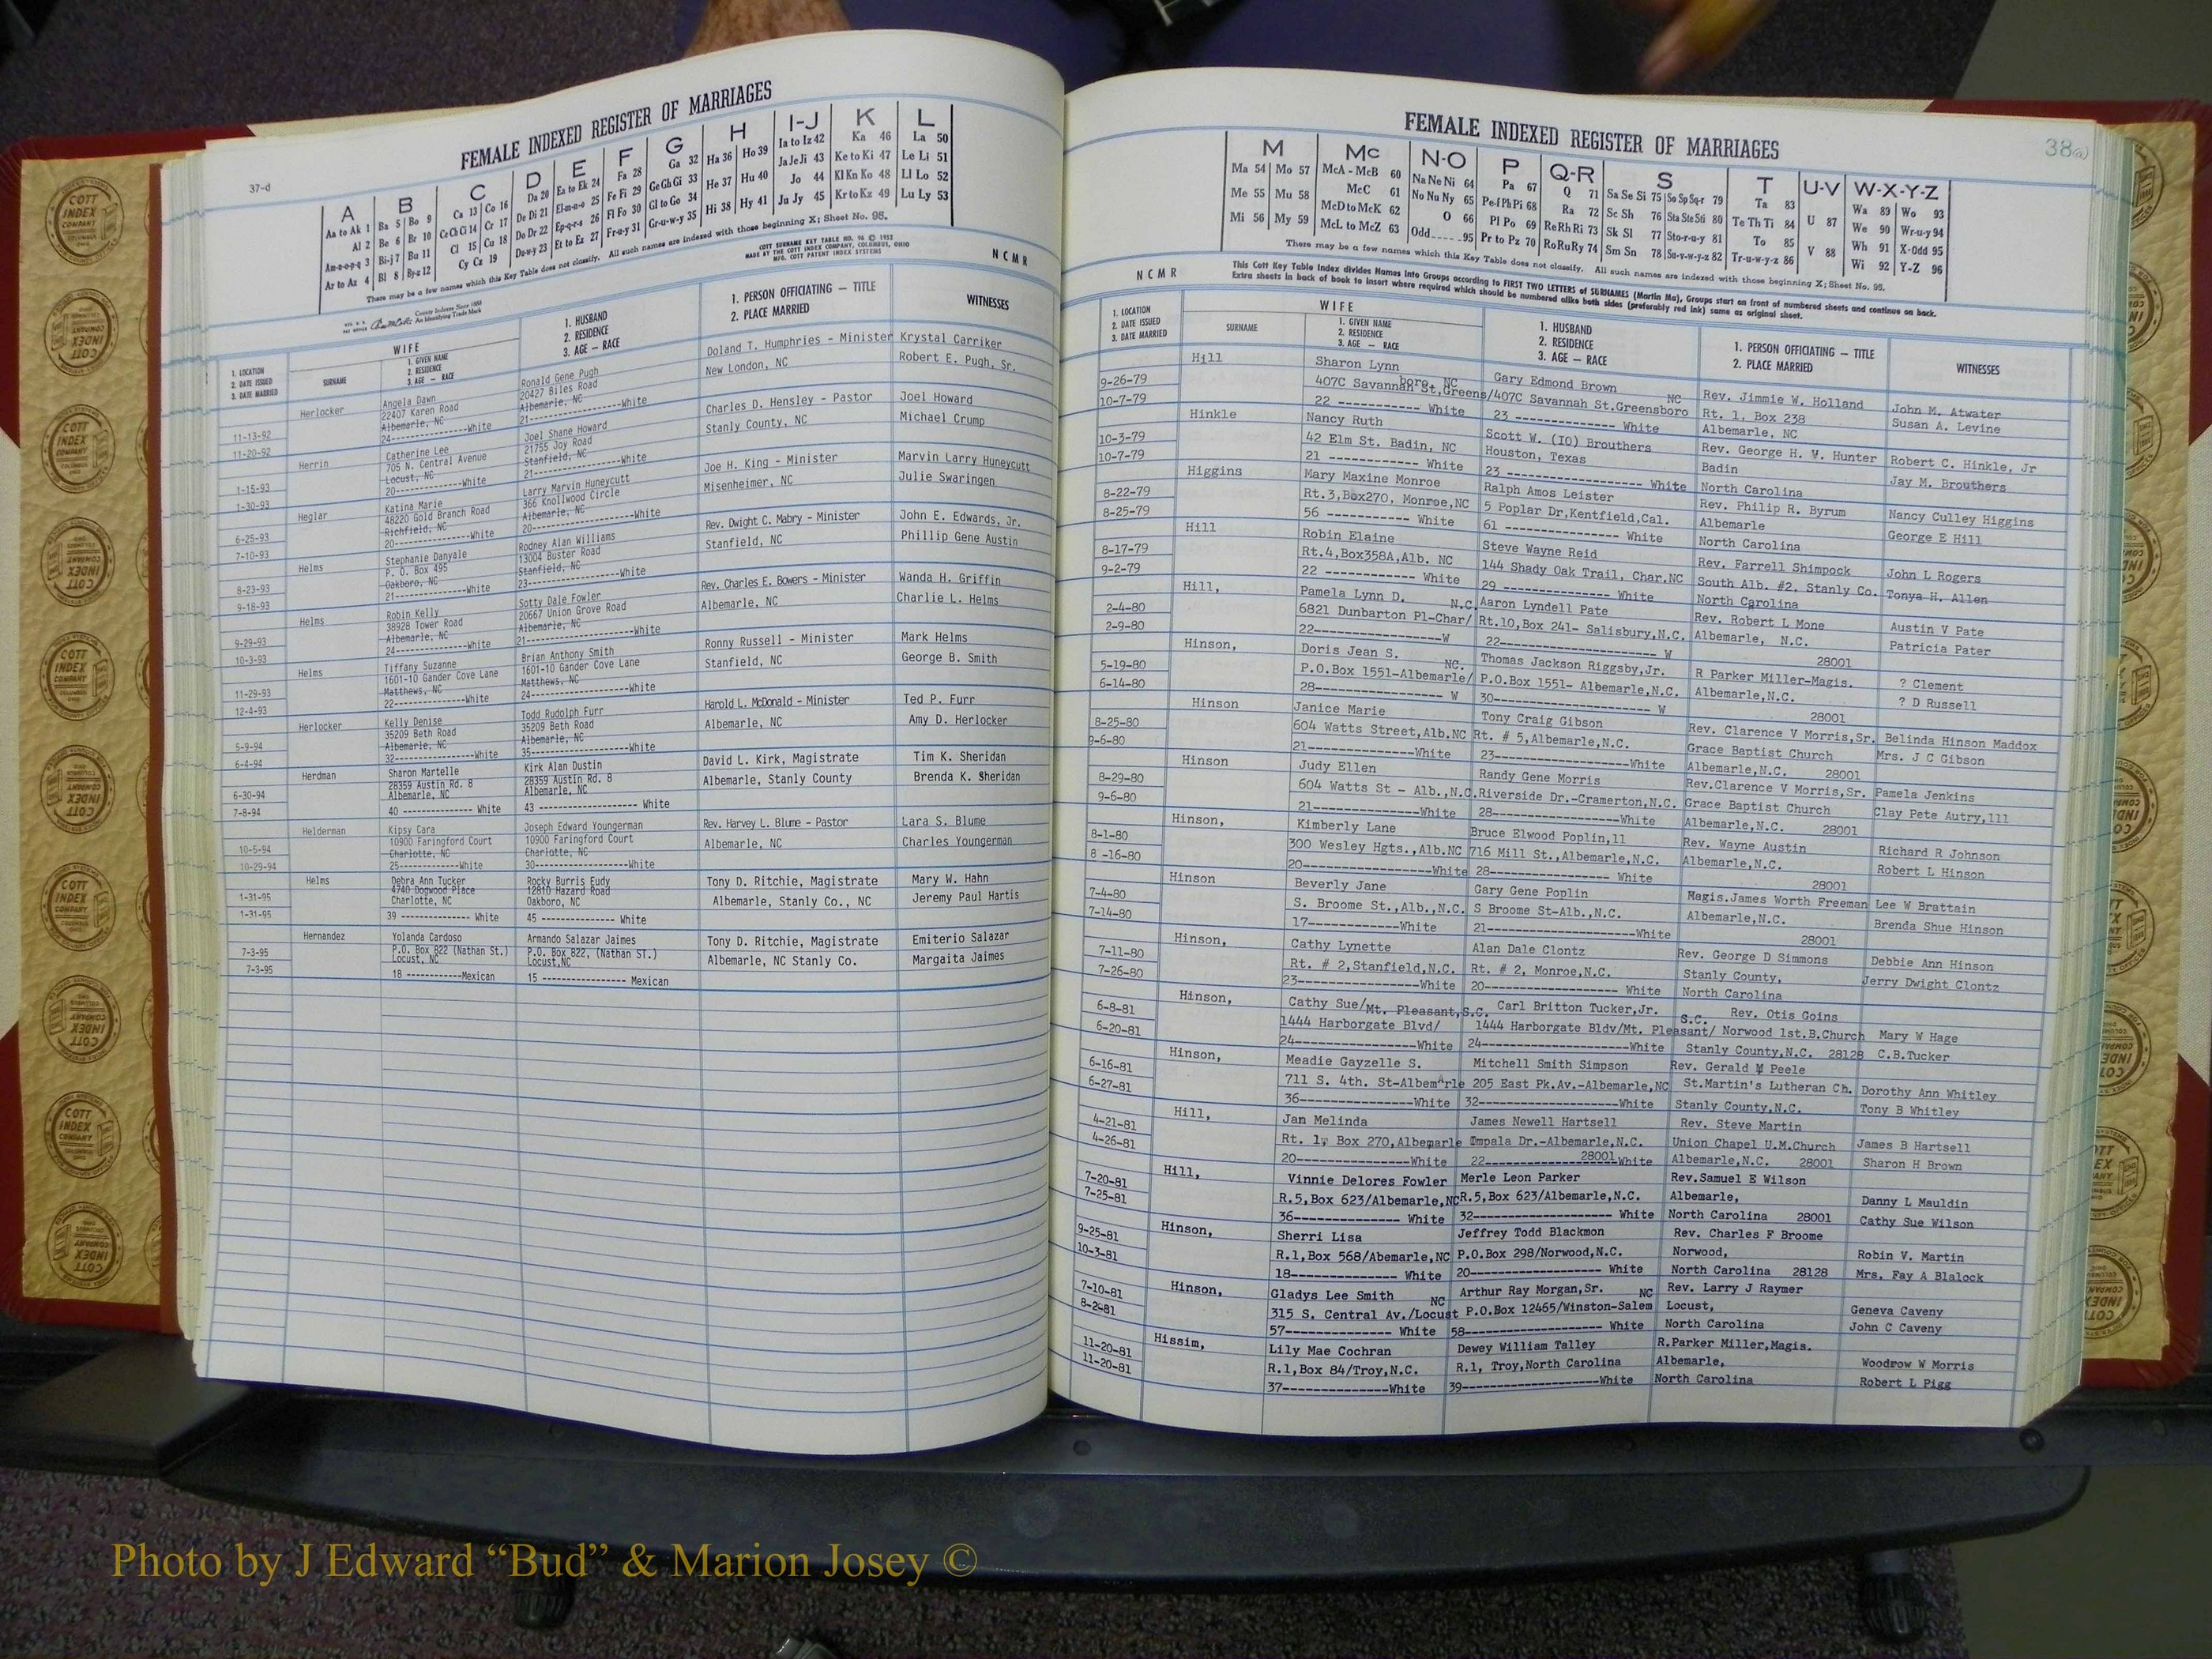 FEMALE INDEXED REGISTER OF MARRIAGES
37-d
A B C D E F G H I-J K L
Aa to Ak 1 Ba 5 Bo 9 Ca 13 Co 16 Da 20 Ea to Ek 24 Fa 28 Ga 32 Ha 36 Ho 39 Ia to Iz 42 Ka 46 La 50
Al 2 Be 6 Br 10 Ce Ch Ci 14 Cr 17 De Di 21 El-m-n-o 25 Fe Fi 29 Ge Gh Gi 33 He 37 Hu 40 Ja Je Ji 43 Ke to Ki 47 Le Li 51
Am-n-o-p-q 3 Bi-j 7 Bu 11 Cl 15 Cu 18 Do Dr 22 Ep-q-r-s 26 Fl Fo 30 Gl to Go 34 Hi 38 Hy 41 Jo 44 Kl Kn Ko 48 Ll Lo 52
Ar to Az 4 Bl 8 By-z 12 Cy Cz 19 Du-w-y 23 Et to Ez 27 Fr-u-y 31 Gr-u-w-y 35 Ju Jy 45 Kr to Kz 49 Lu Ly 53
There may be a few names which this Key Table does not classify. All such names are indexed with those beginning X; Sheet No. 95.
COTT SURNAME KEY TABLE NO. 96 © 1952
MADE BY THE COTT INDEX COMPANY, COLUMBUS, OHIO
MFG. COTT PATENT INDEX SYSTEMS
County Indexes Since 1888
An Identifying Trade Mark
N C M R
1. LOCATION
2. DATE ISSUED
3. DATE MARRIED
WIFE
SURNAME
1. GIVEN NAME
2. RESIDENCE
3. AGE — RACE
1. HUSBAND
2. RESIDENCE
3. AGE — RACE
1. PERSON OFFICIATING — TITLE
2. PLACE MARRIED
WITNESSES
Herlocker Angela Dawn Ronald Gene Pugh Doland T. Humphries - Minister Krystal Carriker
22407 Karen Road 20427 Biles Road New London, NC Robert E. Pugh, Sr.
Albemarle, NC Albemarle, NC
11-13-92 24--------------White 21--------------White
11-20-92
Herrin Catherine Lee Joel Shane Howard Charles D. Hensley - Pastor Joel Howard
705 N. Central Avenue 21755 Joy Road Stanly County, NC Michael Crump
Locust, NC Stanfield, NC
1-15-93 20--------------White 21--------------White
1-30-93
Heglar Katina Marie Larry Marvin Huneycutt Joe H. King - Minister Marvin Larry Huneycutt
48220 Gold Branch Road 366 Knollwood Circle Misenheimer, NC Julie Swaringen
Richfield, NC Albemarle, NC
6-25-93 20--------------White 20--------------White
7-10-93
Helms Stephanie Danyale Rodney Alan Williams Rev. Dwight C. Mabry - Minister John E. Edwards, Jr.
P. O. Box 495 13004 Buster Road Stanfield, NC Phillip Gene Austin
Oakboro, NC Stanfield, NC
8-23-93 21--------------White 23--------------White
9-18-93
Helms Robin Kelly Sotty Dale Fowler Rev. Charles E. Bowers - Minister Wanda H. Griffin
38928 Tower Road 20667 Union Grove Road Albemarle, NC Charlie L. Helms
Albemarle, NC Albemarle, NC
9-29-93 24--------------White 21--------------White
10-3-93
Helms Tiffany Suzanne Brian Anthony Smith Ronny Russell - Minister Mark Helms
1601-10 Gander Cove Lane 1601-10 Gander Cove Lane Stanfield, NC George B. Smith
Matthews, NC Matthews, NC
11-29-93 22--------------White 24--------------White
12-4-93
Herlocker Kelly Denise Todd Rudolph Furr Harold L. McDonald - Minister Ted P. Furr
35209 Beth Road 35209 Beth Road Albemarle, NC Amy D. Herlocker
Albemarle, NC Albemarle, NC
5-9-94 32--------------White 35--------------White
6-4-94
Herdman Sharon Martelle Kirk Alan Dustin David L. Kirk, Magistrate Tim K. Sheridan
28359 Austin Rd. 8 28359 Austin Rd. 8 Albemarle, Stanly County Brenda K. Sheridan
6-30-94 Albemarle, NC Albemarle, NC
7-8-94 40 -------------- White 43 ------------------ White
Helderman Kipsy Cara Joseph Edward Youngerman Rev. Harvey L. Blume - Pastor Lara S. Blume
10900 Faringford Court 10900 Faringford Court Albemarle, NC Charles Youngerman
10-5-94 Charlotte, NC Charlotte, NC
10-29-94 25--------------White 30--------------White
Helms Debra Ann Tucker Rocky Burris Eudy Tony D. Ritchie, Magistrate Mary W. Hahn
4740 Dogwood Place 12810 Hazard Road Albemarle, Stanly Co., NC Jeremy Paul Hartis
1-31-95 Charlotte, NC Oakboro, NC
1-31-95 39 -------------- White 45 --------------- White
Hernandez Yolanda Cardoso Armando Salazar Jaimes Tony D. Ritchie, Magistrate Emiterio Salazar
7-3-95 P.O. Box 822 (Nathan St.) P.O. Box 822, (Nathan ST.) Albemarle, NC Stanly Co. Margaita Jaimes
Locust, NC Locust,NC
7-3-95 18 -----------Mexican 15 ----------------- Mexican
FEMALE INDEXED REGISTER OF MARRIAGES
38(a)
M Mc N-O P Q-R S T U-V W-X-Y-Z
Ma 54 Mo 57 McA - McB 60 Na Ne Ni 64 Pa 67 Q 71 Sa Se Si 75 So Sp Sq-r 79 Ta 83 U 87 Wa 89 Wo 93
Me 55 Mu 58 McC 61 No Nu Ny 65 Pe-i Ph Pi 68 Ra 72 Sc Sh 76 Sta Ste Sti 80 Te Th Ti 84 V 88 We 90 Wr-u-y 94
Mi 56 My 59 McD to McK 62 O 66 Pl Po 69 Re Rh Ri 73 Sk Sl 77 Sto-r-u-y 81 To 85 Wh 91 X-Odd 95
McL to McZ 63 Odd_____95 Pr to Pz 70 Ro Ru Ry 74 Sm Sn 78 Su-v-w-y-z 82 Tr-u-w-y-z 86 Wi 92 Y-Z 96
There may be a few names which this Key Table does not classify. All such names are indexed with those beginning X; Sheet No. 95.
This Cott Key Table Index divides Names into Groups according to FIRST TWO LETTERS of SURNAMES (Martin Ma), Groups start on front of numbered sheets and continue on back.
Extra sheets in back of book to insert where required which should be numbered alike both sides (preferably red ink) same as original sheet.
N C M R
1. LOCATION
2. DATE ISSUED
3. DATE MARRIED
WIFE
SURNAME
1. GIVEN NAME
2. RESIDENCE
3. AGE — RACE
1. HUSBAND
2. RESIDENCE
3. AGE — RACE
1. PERSON OFFICIATING — TITLE
2. PLACE MARRIED
WITNESSES
Hill Sharon Lynn Gary Edmond Brown Rev. Jimmie W. Holland John M. Atwater
boro, NC NC
9-26-79 407C Savannah St,Greens/407C Savannah St.Greensboro Rt. 1, Box 238 Susan A. Levine
10-7-79 22 ----------- White 23 --------------- White Albemarle, NC
Hinkle Nancy Ruth Scott W. (IO) Brouthers Rev. George H. W. Hunter Robert C. Hinkle, Jr
10-3-79 42 Elm St. Badin, NC Houston, Texas Badin Jay M. Brouthers
10-7-79 21 ------------ White 23 ------------------ White North Carolina
Higgins Mary Maxine Monroe Ralph Amos Leister Rev. Philip R. Byrum Nancy Culley Higgins
8-22-79 Rt.3,Box270, Monroe,NC 5 Poplar Dr,Kentfield,Cal. Albemarle George E Hill
8-25-79 56 ----------- White 61 --------------- White North Carolina
Hill Robin Elaine Steve Wayne Reid Rev. Farrell Shimpock John L Rogers
8-17-79 Rt.4,Box358A,Alb. NC 144 Shady Oak Trail, Char.NC South Alb. #2, Stanly Co. Tonya H. Allen
9-2-79 22 ------------ White 29 --------------- White North Carolina
Hill, Pamela Lynn D. N.C. Aaron Lyndell Pate Rev. Robert L Mone Austin V Pate
2-4-80 6821 Dunbarton Pl-Char/ Rt.10,Box 241- Salisbury,N.C. Albemarle, N.C. Patricia Pater
2-9-80 22-----------------W 22--------------------- W 28001
Hinson, Doris Jean S. NC. Thomas Jackson Riggsby,Jr. R Parker Miller-Magis. ? Clement
5-19-80 P.O.Box 1551-Albemarle/ P.O.Box 1551- Albemarle,N.C. Albemarle,N.C. ? D Russell
6-14-80 28----------------- W 30--------------------- W 28001
Hinson Janice Marie Tony Craig Gibson Rev. Clarence V Morris,Sr. Belinda Hinson Maddox
8-25-80 604 Watts Street,Alb.NC Rt. # 5,Albemarle,N.C. Grace Baptist Church Mrs. J C Gibson
9-6-80 21---------------White 23------------------White Albemarle,N.C. 28001
Hinson Judy Ellen Randy Gene Morris Rev.Clarence V Morris,Sr. Pamela Jenkins
8-29-80 604 Watts St - Alb.,N.C. Riverside Dr.-Cramerton,N.C. Grace Baptist Church Clay Pete Autry,lll
9-6-80 21---------------White 28------------------White Albemarle,N.C. 28001
Hinson, Kimberly Lane Bruce Elwood Poplin,ll Rev. Wayne Austin Richard R Johnson
8-1-80 300 Wesley Hgts.,Alb.NC 716 Mill St.,Albemarle,N.C. Albemarle,N.C. Robert L Hinson
8 -16-80 20-----------------White 28------------------ White 28001
Hinson Beverly Jane Gary Gene Poplin Magis.James Worth Freeman Lee W Brattain
7-4-80 S. Broome St.,Alb.,N.C. S Broome St-Alb.,N.C. Albemarle,N.C. Brenda Shue Hinson
7-14-80 17---------------White 21--------------------White 28001
Hinson, Cathy Lynette Alan Dale Clontz Rev. George D Simmons Debbie Ann Hinson
7-11-80 Rt. # 2,Stanfield,N.C. Rt. # 2, Monroe,N.C. Stanly County, Jerry Dwight Clontz
7-26-80 23-----------------White 20------------------ White North Carolina
Hinson, Cathy Sue/Mt. Pleasant,S.C. Carl Britton Tucker,Jr. Rev. Otis Goins
S.C.
6-8-81 1444 Harborgate Blvd/ 1444 Harborgate Bldv/Mt. Pleasant/ Norwood 1st.B.Church Mary W Hage
6-20-81 24-----------------White 24--------------------White Stanly County,N.C. 28128 C.B.Tucker
Hinson, Meadie Gayzelle S. Mitchell Smith Simpson Rev. Gerald W Peele
6-16-81 711 S. 4th. St-Albemarle 205 East Pk.Av.-Albemarle,NC St.Martin's Lutheran Ch. Dorothy Ann Whitley
6-27-81 36-----------------White 32--------------------White Stanly County,N.C. Tony B Whitley
Hill, Jan Melinda James Newell Hartsell Rev. Steve Martin
4-21-81 Rt. 1, Box 270,Albemarle Impala Dr.-Albemarle,N.C. Union Chapel U.M.Church James B Hartsell
4-26-81 20-----------------White 22--------------28001 White Albemarle,N.C. 28001 Sharon H Brown
Hill, Vinnie Delores Fowler Merle Leon Parker Rev.Samuel E Wilson
7-20-81 R.5,Box 623/Albemarle,NC R.5,Box 623/Albemarle,N.C. Albemarle, Danny L Mauldin
7-25-81 36---------------- White 32--------------------- White North Carolina 28001 Cathy Sue Wilson
Hinson, Sherri Lisa Jeffrey Todd Blackmon Rev. Charles F Broome
9-25-81 R.1,Box 568/Abemarle,NC P.O.Box 298/Norwood,N.C. Norwood, Robin V. Martin
10-3-81 18---------------- White 20-------------------- White North Carolina 28128 Mrs. Fay A Blalock
Hinson, Gladys Lee Smith NC Arthur Ray Morgan,Sr. NC Rev. Larry J Raymer
7-10-81 315 S. Central Av./Locust P.O.Box 12465/Winston-Salem Locust, Geneva Caveny
8-2-81 57---------------- White 58--------------------- White North Carolina John C Caveny
Hissim, Lily Mae Cochran Dewey William Talley R.Parker Miller,Magis.
11-20-81 R.1,Box 84/Troy,N.C. R.1, Troy,North Carolina Albemarle, Woodrow W Morris
11-20-81 37----------------White 39---------------------White North Carolina Robert L Pigg
COTT INDEX COMPANY
Photo by J Edward “Bud” & Marion Josey ©